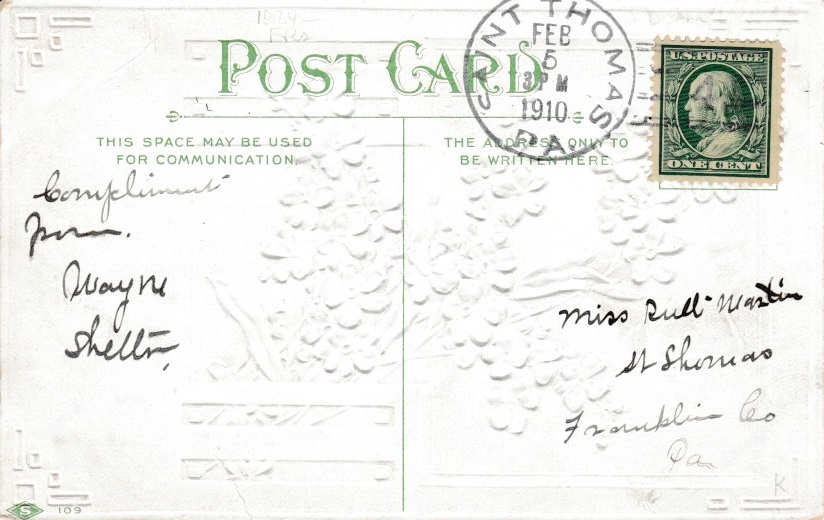 POST CARD
SAINT THOMAS
FEB
5
3 PM
1910
PA
U.S. POSTAGE
ONE CENT
THIS SPACE MAY BE USED
FOR COMMUNICATION.
THE ADDRESS ONLY TO
BE WRITTEN HERE.
Compliment
from.
Wayne
Shelton
Miss Ruth Martin
St Thomas
Franklin Co
Pa
K
S 109